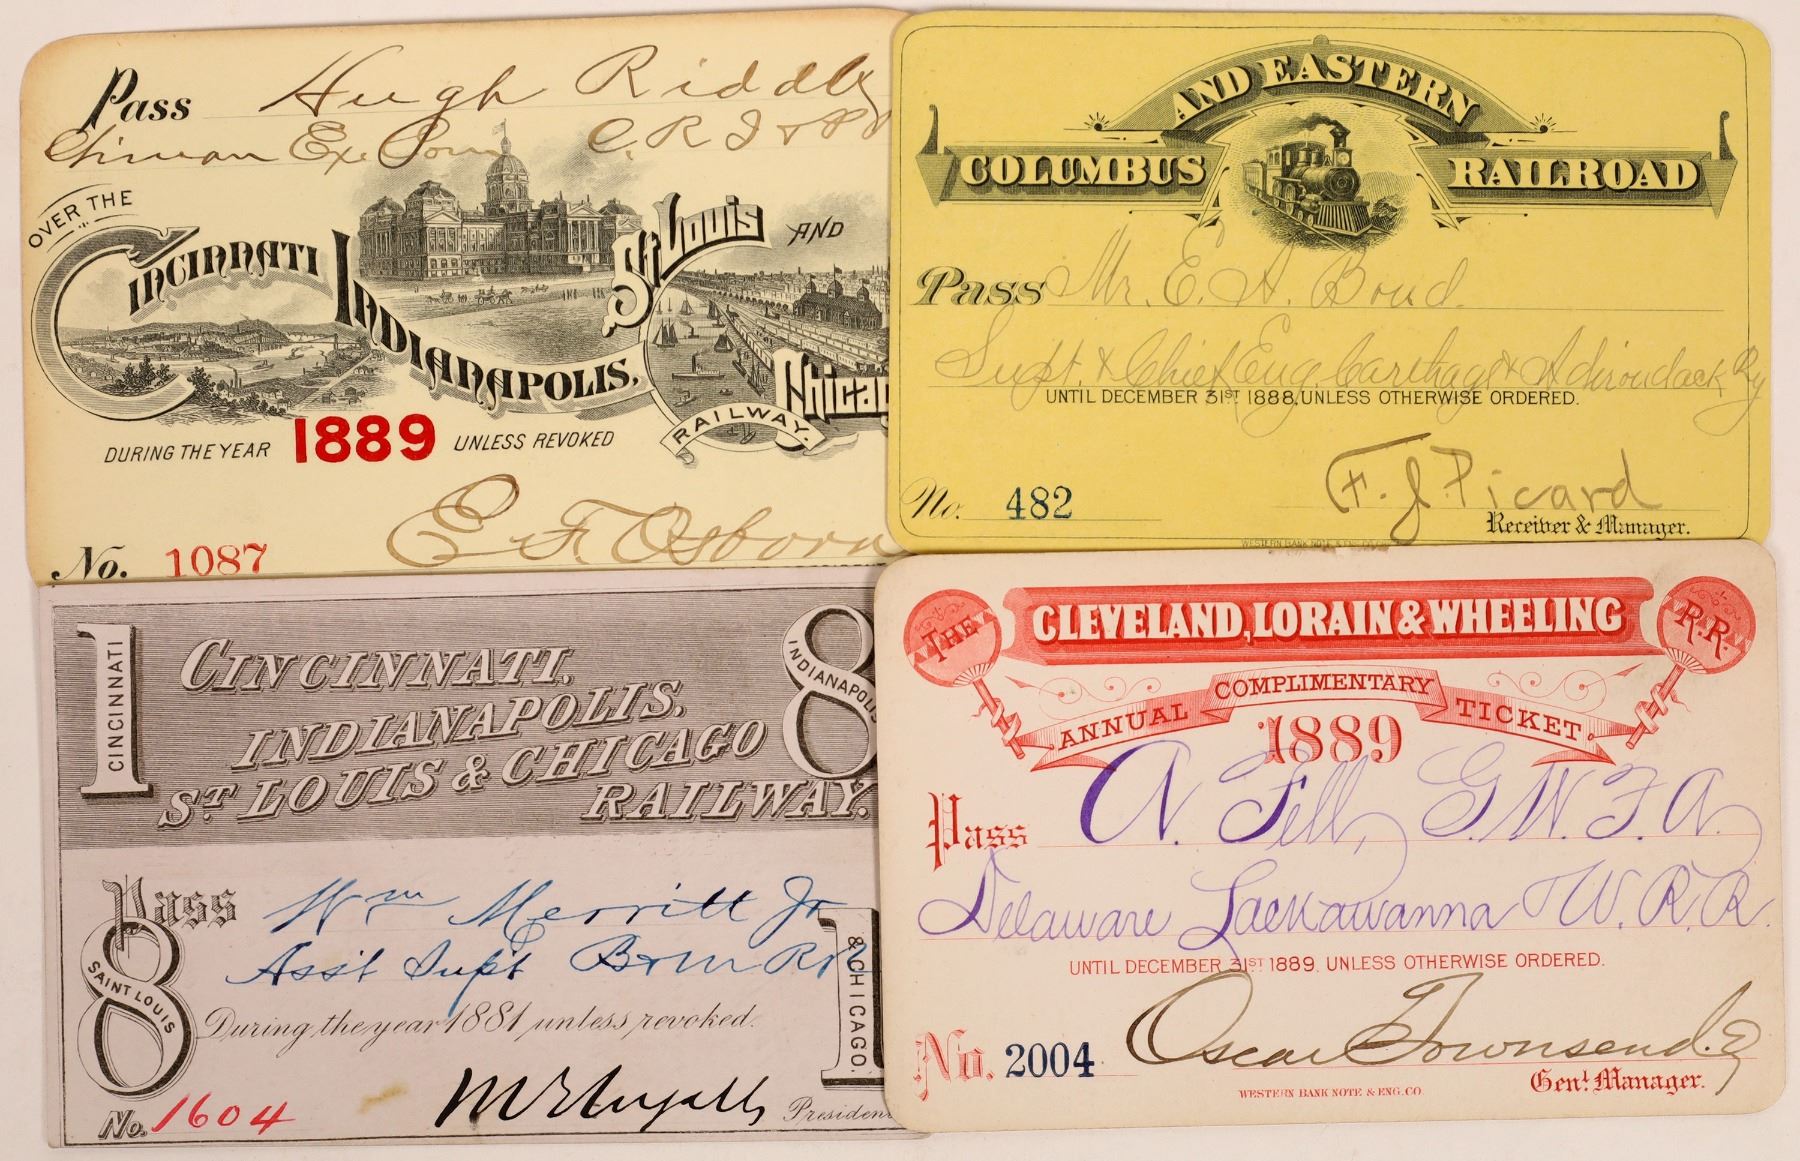 Pass Hugh Riddle
Ex. Com C. R. I & P
OVER THE
CINCINNATI
INDIANAPOLIS,
ST. LOUIS AND
CHICAG
RAILWAY.
DURING THE YEAR 1889 UNLESS REVOKED
No. 1087 E. F. Osborn
AND EASTERN
COLUMBUS RAILROAD
Pass Mr. E. A. Bond.
Supt. & Chief Eng. Carthage & Adirondack Ry
UNTIL DECEMBER 31ST 1888, UNLESS OTHERWISE ORDERED.
No. 482 F. J. Picard
Receiver & Manager.
WESTERN BANK NOTE & ENG. CO.
1 CINCINNATI
8 INDIANAPOLIS
CINCINNATI,
INDIANAPOLIS,
ST LOUIS & CHICAGO
RAILWAY.
Pass Wm Merritt Jr
Ass't Sup't B & M R R
8 SAINT LOUIS
1 & CHICAGO.
During the year 1881 unless revoked.
No. 1604 President
THE CLEVELAND, LORAIN & WHEELING R.R.
ANNUAL COMPLIMENTARY TICKET.
1889
Pass A. Fell, G. W. F. A.
Delaware Lackawanna & W. R. R.
UNTIL DECEMBER 31ST 1889, UNLESS OTHERWISE ORDERED.
No. 2004 Oscar Townsend.
Genl. Manager.
WESTERN BANK NOTE & ENG. CO.